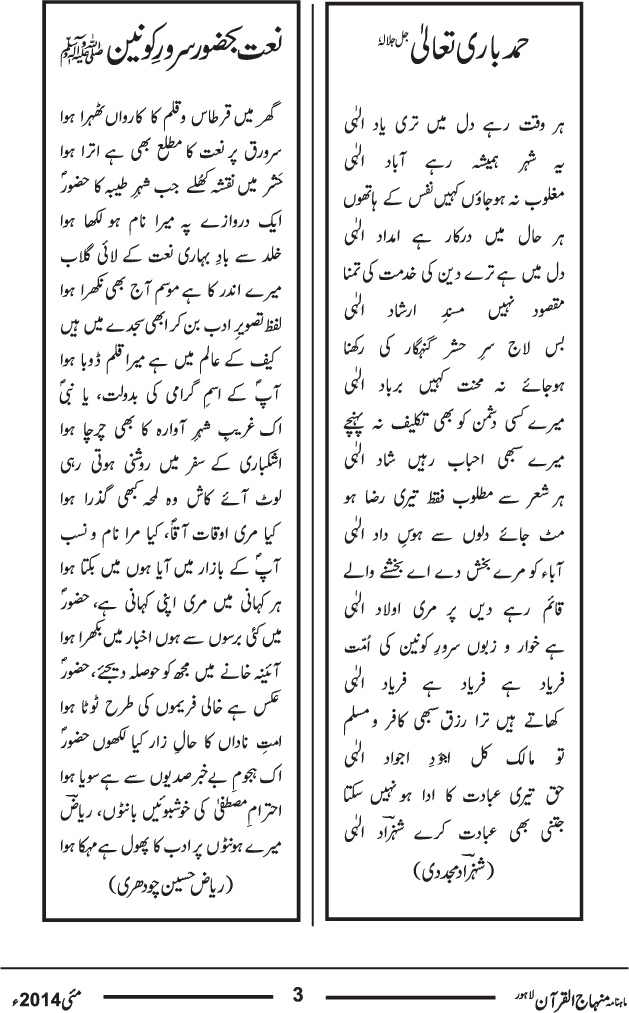 حمد باری تعالیٰ جل جلالہٗ
ہر وقت رہے دل میں تری یاد الٰہی
یہ شہر ہمیشہ رہے آباد الٰہی
مغلوب نہ ہوجاؤں کہیں نفس کے ہاتھوں
ہر حال میں درکار ہے امداد الٰہی
دل میں ہے ترے دین کی خدمت کی تمنا
مقصود نہیں مسندِ ارشاد الٰہی
بس لاج سرِ حشر گنہگار کی رکھنا
ہوجائے نہ محنت کہیں برباد الٰہی
میرے کسی دشمن کو بھی تکلیف نہ پہنچے
میرے سبھی احباب رہیں شاد الٰہی
ہر شعر سے مطلوب فقط تیری رضا ہو
مٹ جائے دلوں سے ہوسِ داد الٰہی
آباء کو مرے بخش دے اے بخشنے والے
قائم رہے دیں پر مری اولاد الٰہی
ہے خوار و زبوں سرورِ کونین کی اُمّت
فریاد ہے فریاد ہے فریاد الٰہی
کھاتے ہیں ترا رزق سبھی کافر و مسلم
تو مالک کل اجودِ اجواد الٰہی
حق تیری عبادت کا ادا ہو نہیں سکتا
جتنی بھی عبادت کرے شہزادؔ الٰہی
(شہزادؔ مجددی)
نعت بحضور سرورِ کونین ﷺ
گھر میں قرطاس و قلم کا کارواں ٹھہرا ہوا
سرورق پر نعت کا مطلع بھی ہے اترا ہوا
حشر میں نقشہ کُھلے جب شہرِ طیبہ کا حضورؐ
ایک دروازے پہ میرا نام ہو لکھا ہوا
خلد سے بادِ بہاری نعت کے لائی گلاب
میرے اندر کا ہے موسم آج بھی نکھرا ہوا
لفظ تصویرِ ادب بن کر ابھی سجدے میں ہیں
کیف کے عالم میں ہے میرا قلم ڈوبا ہوا
آپؐ کے اسمِ گرامی کی بدولت، یا نبیؐ
اک غریبِ شہرِ آوارہ کا بھی چرچا ہوا
اشکباری کے سفر میں روشنی ہوتی رہی
لوٹ آئے کاش وہ لمحہ کبھی گذرا ہوا
کیا مری اوقات آقاؐ، کیا مرا نام و نسب
آپؐ کے بازار میں آیا ہوں میں بکتا ہوا
ہر کہانی میں مری اپنی کہانی ہے، حضورؐ
میں کئی برسوں سے ہوں اخبار میں بکھرا ہوا
آئینہ خانے میں مجھ کو حوصلہ دیجئے، حضورؐ
عکس ہے خالی فریموں کی طرح ٹوٹا ہوا
امتِ ناداں کا حالِ زار کیا لکھوں حضورؐ
اک ہجومِ بے خبر صدیوں سے ہے سویا ہوا
احترامِ مصطفیٰؐ کی خوشبوئیں بانٹوں، ریاضؔ
میرے ہونٹوں پر ادب کا پھول ہے مہکا ہوا
(ریاض حسین چودھری)
ماہنامہ منہاج القرآن لاہور
3
مئی 2014ء